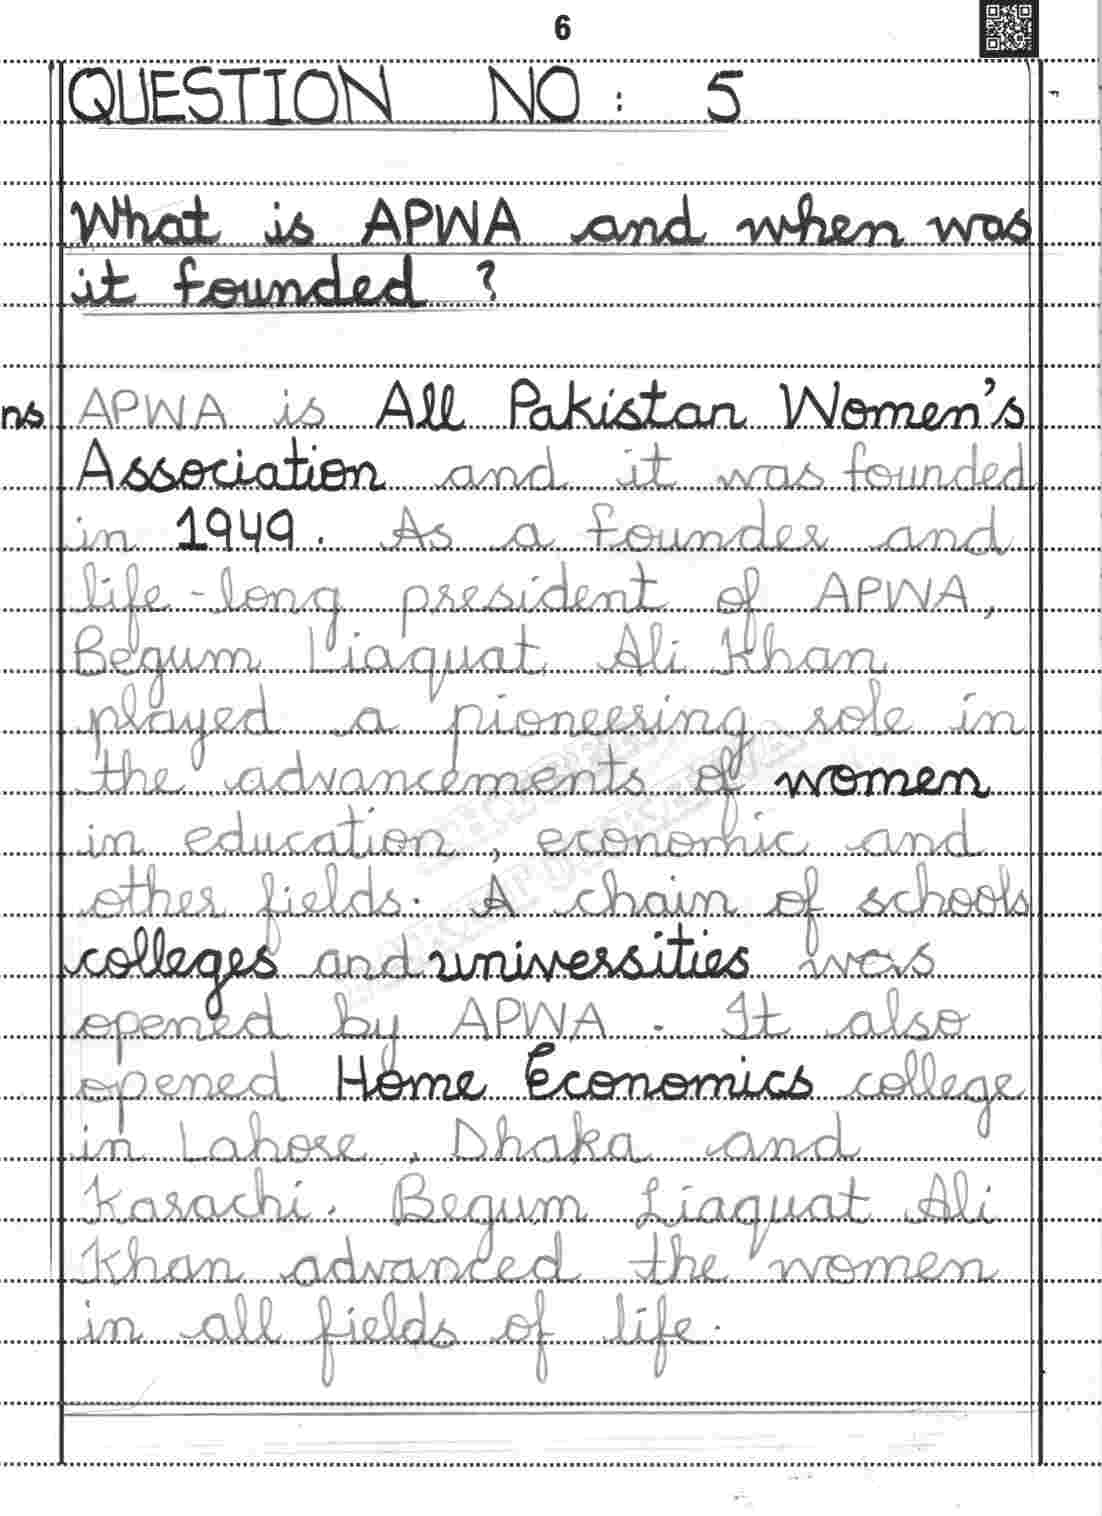 6
QUESTION NO: 5
What is APWA and when was
it founded ?
ns APWA is All Pakistan Women's
Association and it was founded
in 1949. As a founder and
life-long president of APWA,
Begum Liaquat Ali Khan
played a pioneering role in
the advancements of women
in education, economic and
other fields. A chain of schools
colleges and universities was
opened by APWA. It also
opened Home Economics college
in Lahore, Dhaka and
Karachi. Begum Liaquat Ali
Khan advanced the women
in all fields of life.